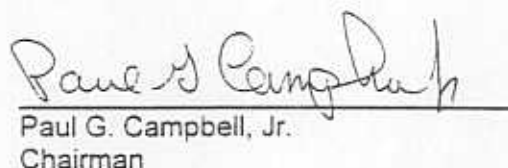 Paul G Campbell Jr
Paul G. Campbell, Jr.
Chairman